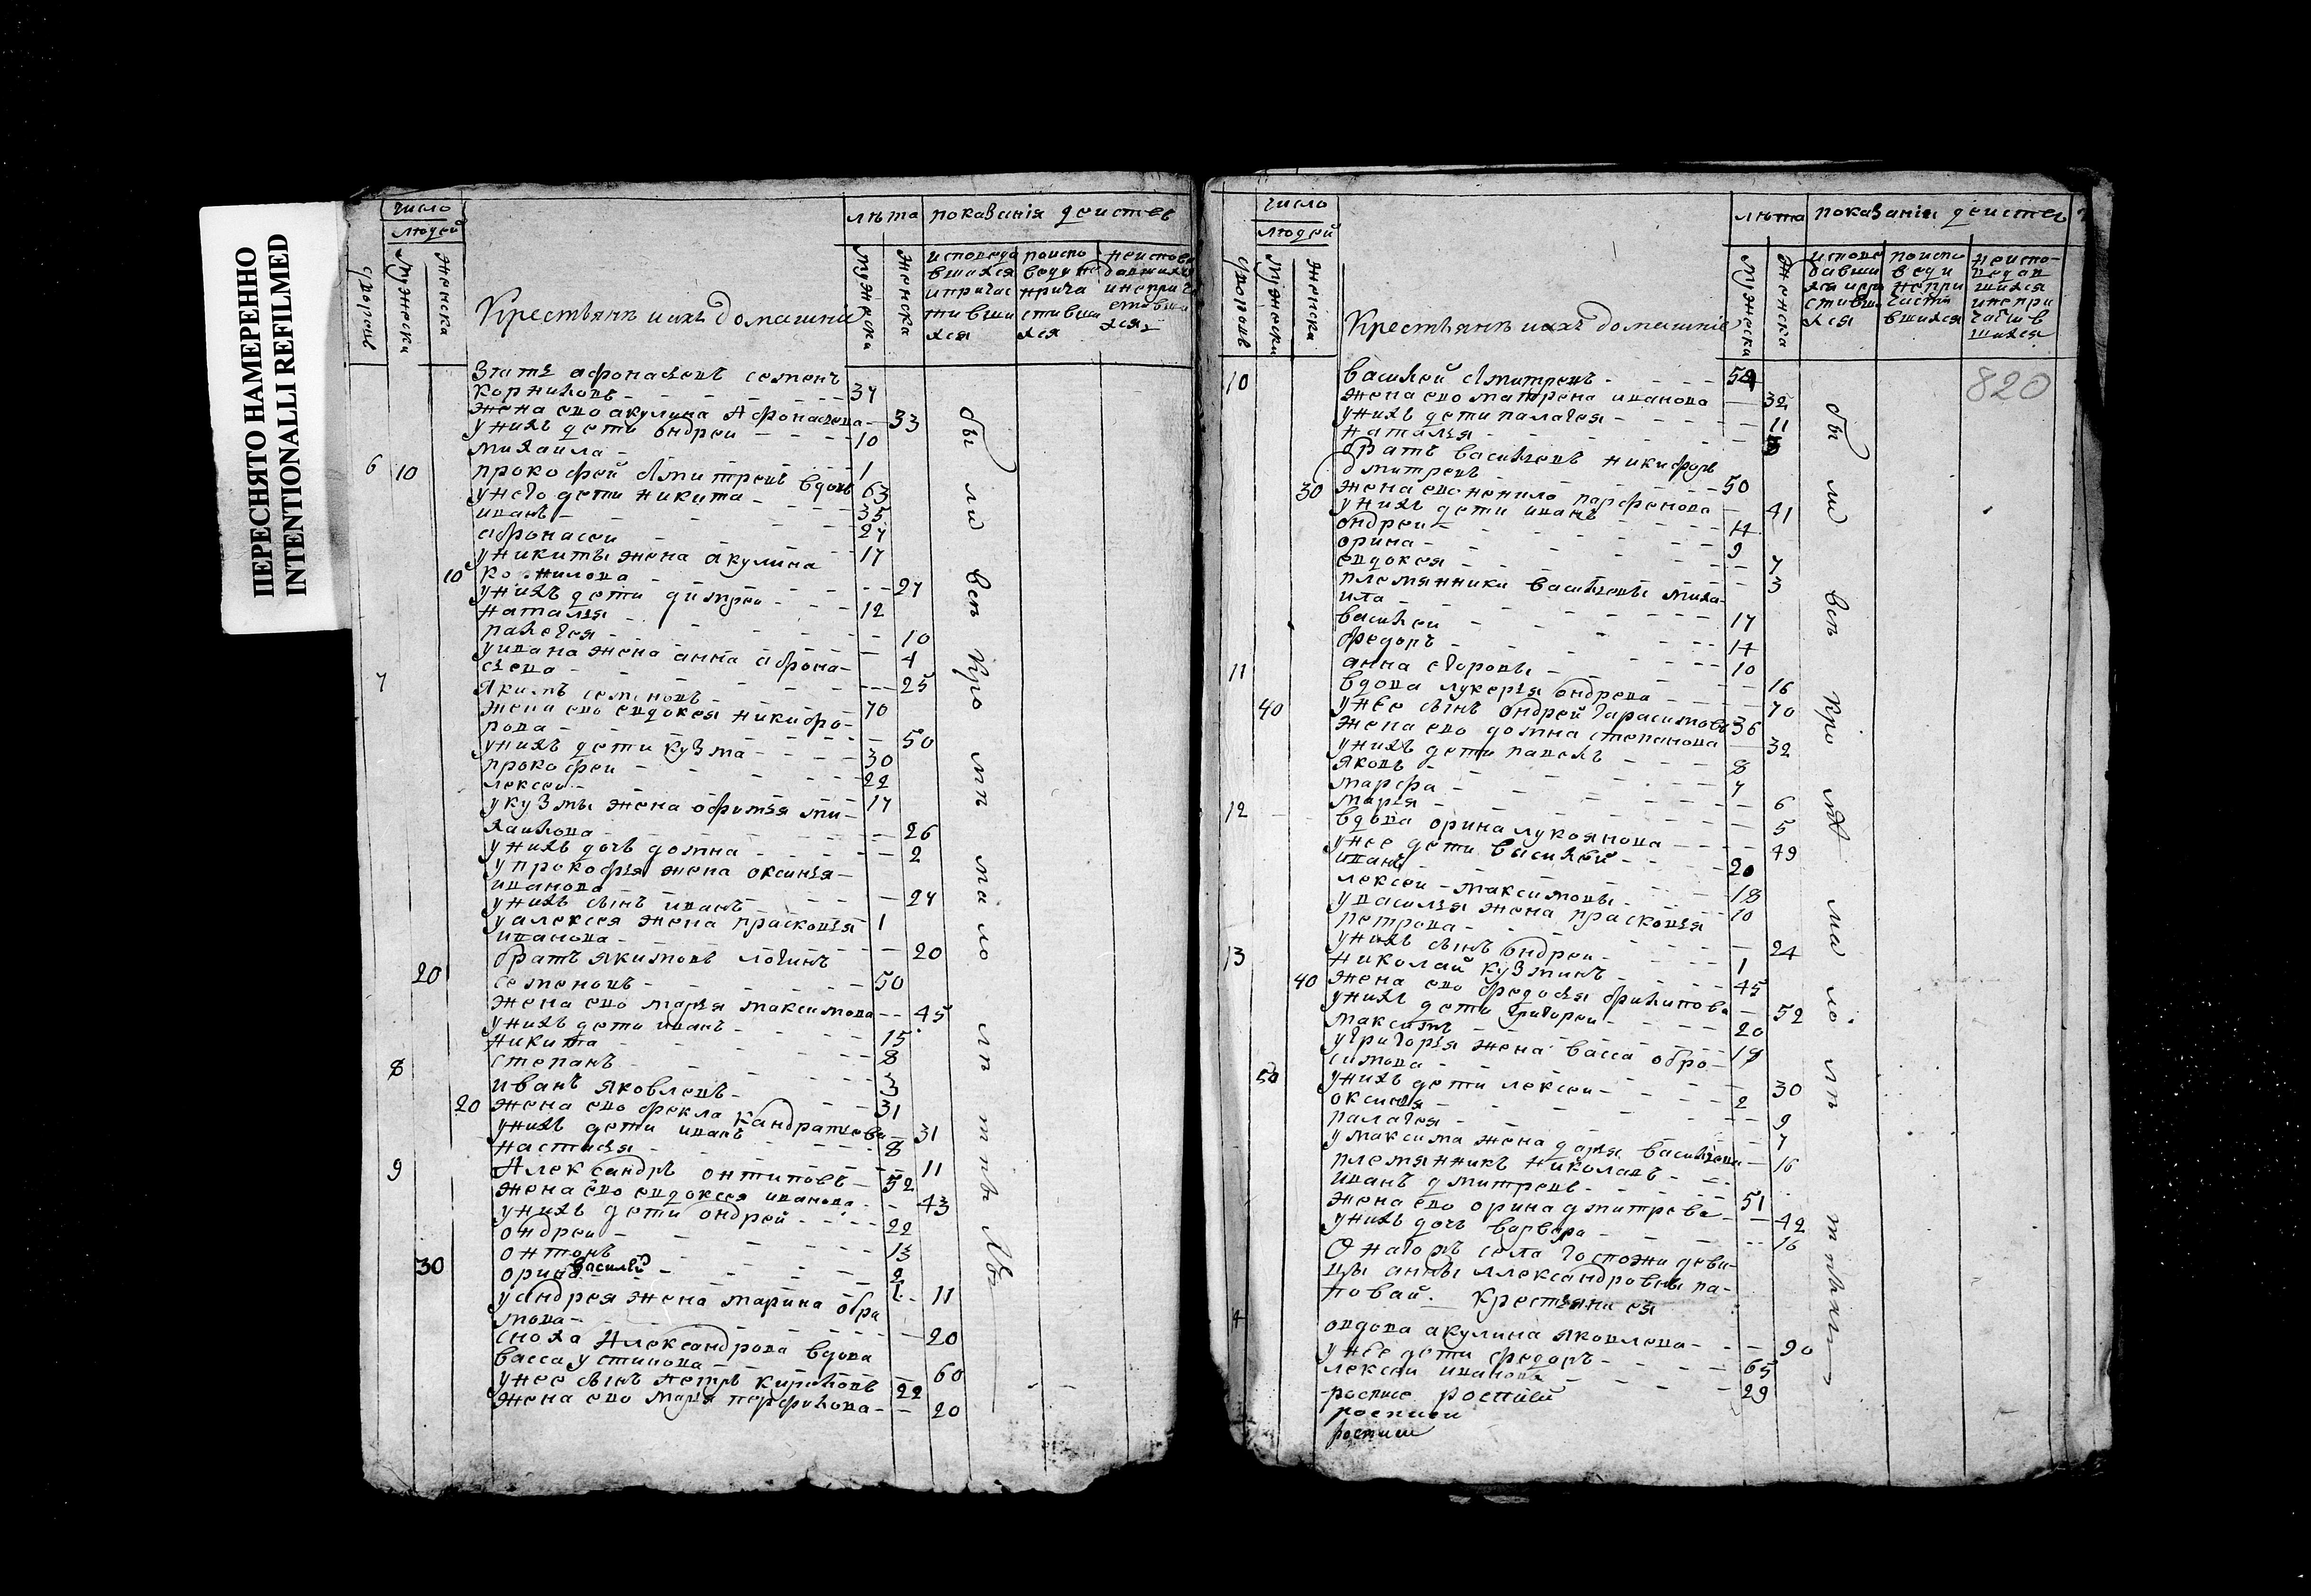 ПЕРЕСНЯТО НАМЕРЕННО
INTENTIONALLI REFILMED
число
людей
дворовъ
мужеска
женска
Крестьянъ и ихъ домашни
лѣта
мужеска
женска
показанія действ
исповеда
вшихся
и причас
тивши
хся
по испо
веди не
прича
стивши
хся
неиспове
давшихся
и непри ча
стивши
хся
зять афонасьевъ семенъ
корниловъ 37
жена ево акулина Афонасьева 33
у нихъ дети ондреи 10
михаила 1
6 10 прокофей дмитревъ вдовъ 63
у него дети никита 35
иванъ 27
афонасеи 17
у никиты жена акулина
10 корнилова 27
у нихъ дети димтреи 12
наталья 10
палагея 4
у ивана жена анна афона
сьева 25
7 яких семеновъ 70
жена ево евдокея никифо
рова 50
у нихъ дети кузма 30
прокофеи 22
лексеи 17
у кузмы жена офимья ми
хаилова 26
у нихъ дочь домна 2
у прокофья жена оксинья
иванова 27
у нихъ сынъ иванъ 1
у алексея жена прасковья
иванова 20
братъ якимовъ логинъ
20 семеновъ 50
жена ево марья максимова 45
у нихъ дети иванъ 15
никита 8
степанъ 3
8 иванъ яковлевъ 31
20 жена ево фекла кандратьева 31
у нихъ дети иванъ 8
настасья 11
9 Александръ онтиповъ 52
жена ево евдокея иванова 43
у нихъ дети ондрей 22
ондреи 13
онтонъ 9
30 василей 1
орина 11
у андрея жена марина обра
мова 20
сноха Александрова вдова
васса устинова 60
у нее сынъ петръ кириловъ 22
жена ево марья перфилова 20
число
людей
дворовъ
мужески
женска
Крестьянъ и ихъ домашние
лѣта
мужеска
женска
показанія действ
820
10 василей дмитревъ
жена ево матрена иванова 32
у нихъ дети палагея 11
наталья
братъ васильевъ никифоръ
дмитревъ 50
30 жена ево ненила парфенова 41
у нихъ дети иванъ 14
ондреи 9
орина 7
евдокея 3
племянники васильевы миха
ила 17
василеи 14
федоръ 10
анна егоровы 16
11 вдова лукерья ондрева 70
40 у нее сынъ ондрей гарасимовъ 36
жена ево домна степанова 32
у нихъ дети павелъ 8
яковъ 7
марфа 6
марья 5
12 вдова орина лукоянова 49
у нее дети василей 20
иванъ 18
лексеи максимовы 10
у василья жена прасковья
петрова 24
у нихъ сынъ ондреи 1
13 николай кузминъ 45
40 жена ево федосья филипова 52
у нихъ дети григореи 20
максимъ 18
у григорья жена васса обро
симова 30
50 у нихъ дети лексеи 2
оксинья 9
палагея 7
у максима жена дарья васильева 16
племянникъ николаевъ
иванъ дмитревъ 51
жена ево орина дмитрева 42
у нихъ дочь варвара 16
Онагожъ села госпожи деви
цы анны Александровны па
повай. Крестьяни ея
овдова акулина яковлева 90
у нее дети федоръ 65
лексеи ивановы 29
росписе росписи
росписи
росписи